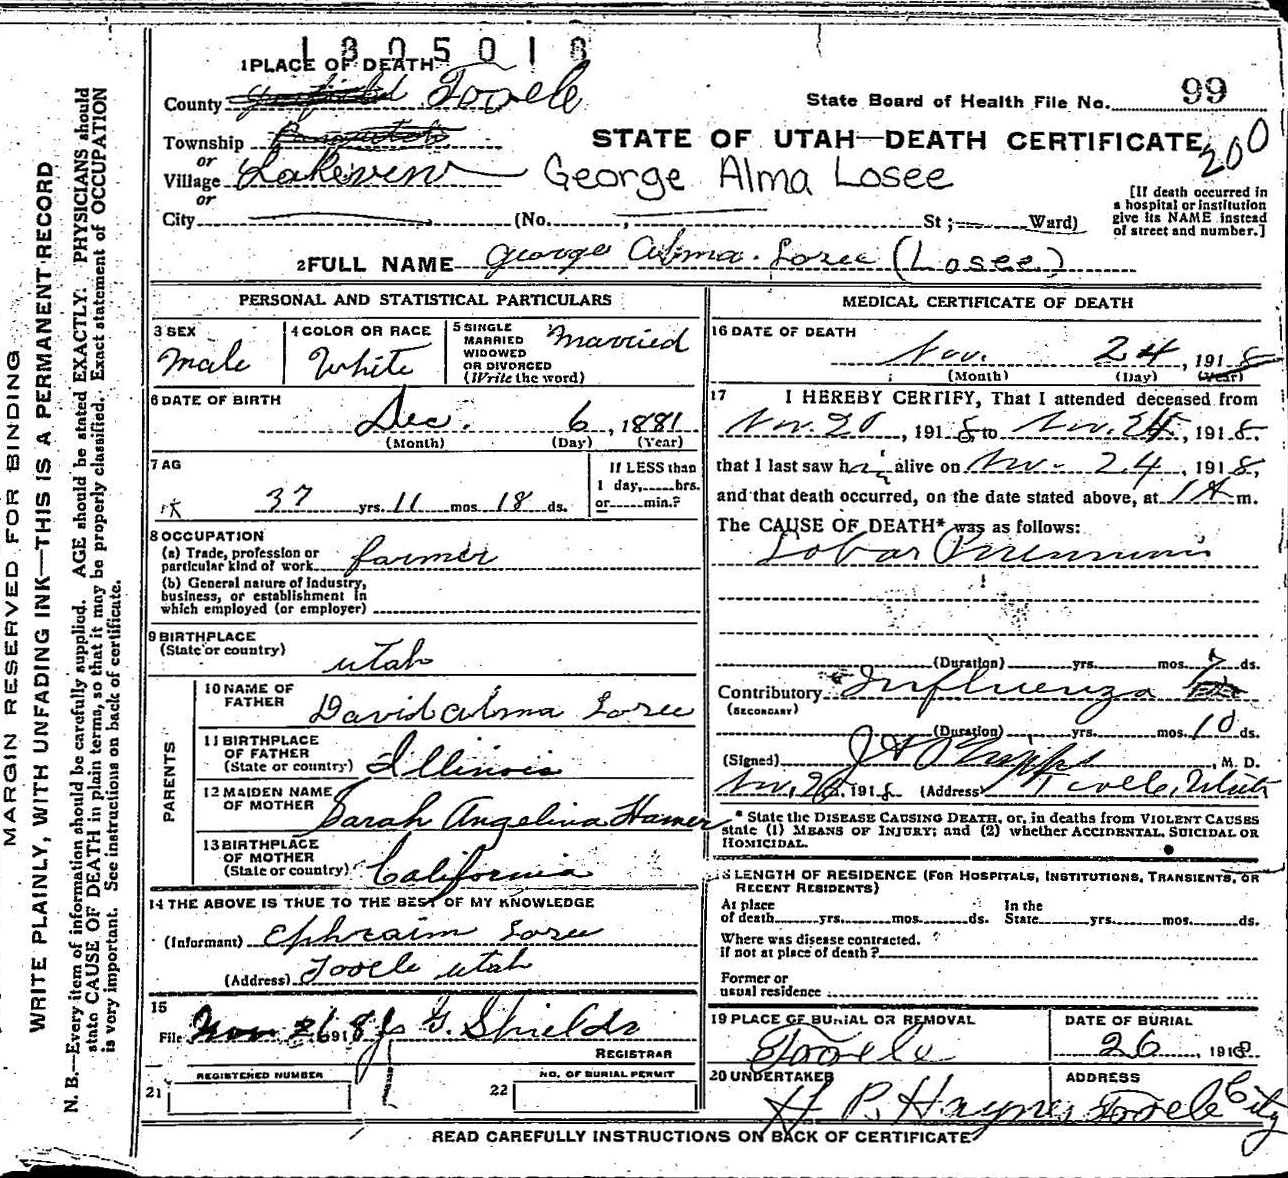 1805018
1 PLACE OF DEATH
County Tooele
State Board of Health File No. 99
Township
STATE OF UTAH—DEATH CERTIFICATE
200
or
Village Lakeview George Alma Losee
or
City (No. St; Ward)
[If death occurred in
a hospital or institution
give its NAME instead
of street and number.]
2 FULL NAME George Alma Losee (Losee)
PERSONAL AND STATISTICAL PARTICULARS
3 SEX
Male
4 COLOR OR RACE
White
5 SINGLE
MARRIED
WIDOWED
OR DIVORCED
(Write the word)
Married
6 DATE OF BIRTH
Dec. 6, 1881
(Month) (Day) (Year)
7 AG
37 yrs. 11 mos. 18 ds.
If LESS than
1 day, hrs.
or min.?
8 OCCUPATION
(a) Trade, profession or
particular kind of work farmer
(b) General nature of industry,
business, or establishment in
which employed (or employer)
9 BIRTHPLACE
(State or country)
Utah
PARENTS
10 NAME OF
FATHER David Alma Losee
11 BIRTHPLACE
OF FATHER
(State or country) Illinois
12 MAIDEN NAME
OF MOTHER Sarah Angelina Hamer
13 BIRTHPLACE
OF MOTHER
(State or country) California
14 THE ABOVE IS TRUE TO THE BEST OF MY KNOWLEDGE
(Informant) Ephraim Losee
(Address) Tooele Utah
15
File Nov 26 1918 G. Shields
REGISTRAR
21 REGISTERED NUMBER
22 NO. OF BURIAL PERMIT
MEDICAL CERTIFICATE OF DEATH
16 DATE OF DEATH
Nov. 24, 1918
(Month) (Day) (Year)
17 I HEREBY CERTIFY, That I attended deceased from
Nov. 20, 1918 to Nov. 24, 1918.
that I last saw h alive on Nov. 24, 1918,
and that death occurred, on the date stated above, at m.
The CAUSE OF DEATH* was as follows:
Lobar Pneumonia
(Duration) yrs. mos. 7 ds.
Contributory Influenza
(SECONDARY)
(Duration) yrs. mos. 10 ds.
(Signed) , M. D.
Nov. 26, 1918 (Address) Tooele, Utah
* State the DISEASE CAUSING DEATH, or, in deaths from VIOLENT CAUSES
state (1) MEANS OF INJURY; and (2) whether ACCIDENTAL, SUICIDAL OR
HOMICIDAL.
18 LENGTH OF RESIDENCE (FOR HOSPITALS, INSTITUTIONS, TRANSIENTS, OR
RECENT RESIDENTS)
At place
of death yrs. mos. ds.
In the
State yrs. mos. ds.
Where was disease contracted,
if not at place of death?
Former or
usual residence
19 PLACE OF BURIAL OR REMOVAL
Tooele
DATE OF BURIAL
26, 1918
20 UNDERTAKER
H P. Haynes
ADDRESS
Tooele City
READ CAREFULLY INSTRUCTIONS ON BACK OF CERTIFICATE
MARGIN RESERVED FOR BINDING
WRITE PLAINLY, WITH UNFADING INK—THIS IS A PERMANENT RECORD
N. B.—Every item of information should be carefully supplied. AGE should be stated EXACTLY. PHYSICIANS should
state CAUSE OF DEATH in plain terms, so that it may be properly classified. Exact statement of OCCUPATION
is very important. See instructions on back of certificate.